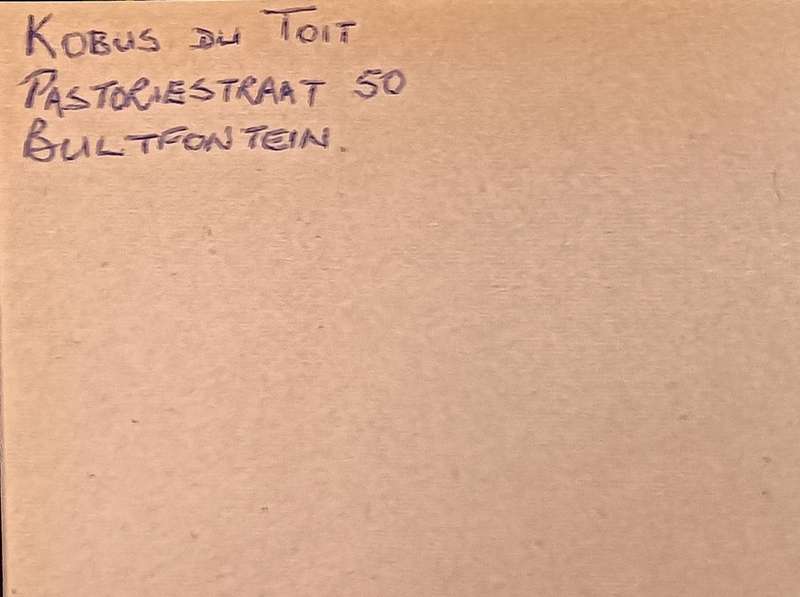 KOBUS DU TOIT
PASTORIESTRAAT 50
BULTFONTEIN.